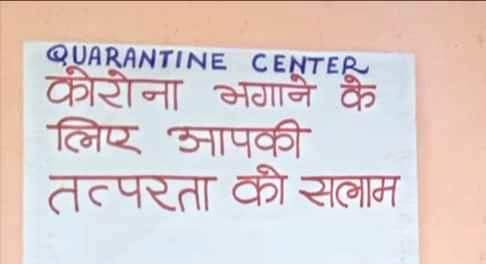 QUARANTINE CENTER
कोरोना भगाने के
लिए आपकी
तत्परता को सलाम